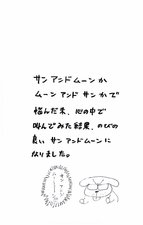 サン アンド ムーン か
ムーン アンド サン か で
悩んだ末、心の中で
叫んでみた結果、のびの
良い サン アンド ムーン に
なりました。
サン アンド
ムーーン